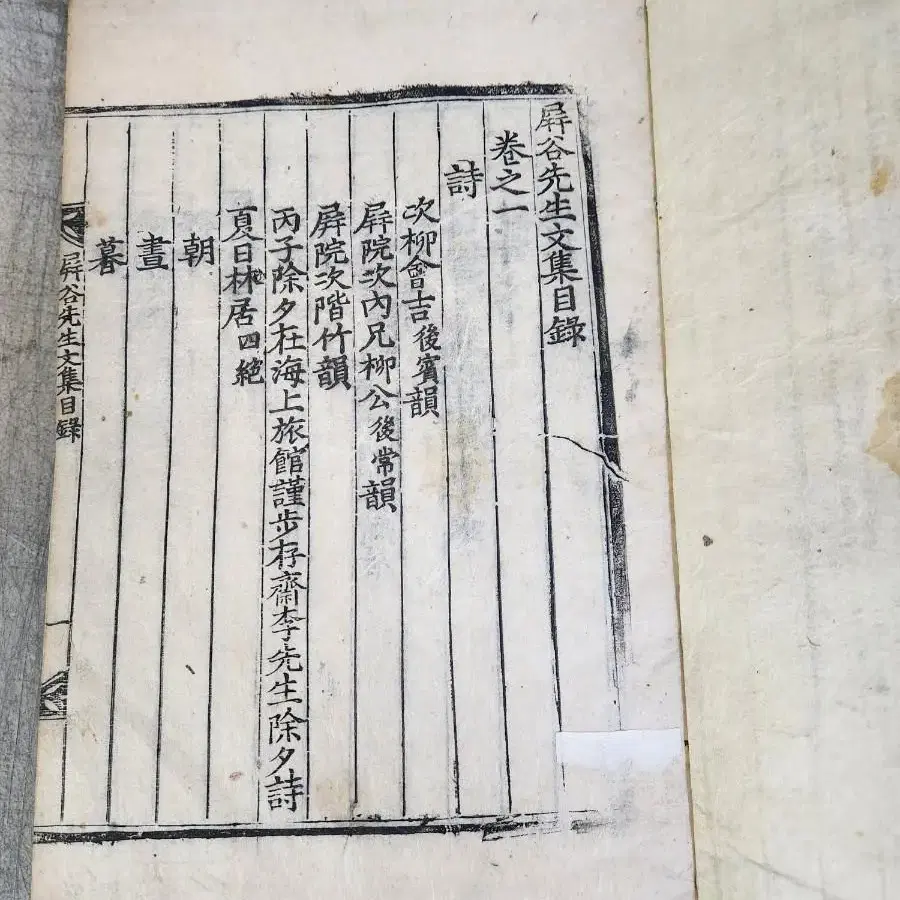 屛谷先生文集目錄
卷之一
詩
次柳會吉後賓韻
屛院次內兄柳公後常韻
屛院次階竹韻
丙子除夕在海上旅館謹步存齋李先生除夕詩
夏日林居四絕
朝
晝
暮
屛谷先生文集目錄
一